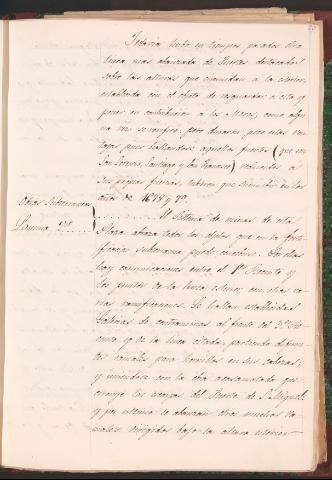 Todavia hubo en tiempos pasados otra
linea mas abanzada de Fuertes destacados
sobre las alturas que circundan a la esterior,
establecida con el objeto de resguardar a esta y
poner en contribucion a los Moros, como algu
na vez se verificó; pero duraron poco estas ven
tajas pues hallandose aquellos fuertes (que eran
San Lorenzo, Santiago y San Francisco) reducidos á
sus propias fuerzas, tubieron que sucumbir en los
años de 1678 y 79.
Obras Subterraneas
Lamina 
El Sistema de minas de esta
Plaza abraza todos los objetos que en la forti
ficacion subterranea puede concebirse. Por ellas
hay comunicaciones entre el 1er Recinto y
los puntos de la linea esterior con otras va
rias ramificaciones. Se hallan establecidas
Galerias de contraminas al frente del 3er Re
cinto y de la linea citada, partiendo de pun
tos ramales para hornillos en sus cabezas;
y uniendose con la obra acasamatada que
circuye las escarpas del Fuerte de S. Miguel
y por ultimo se abanzan otros muchos ra
males dirigidos bajo la altura esterior